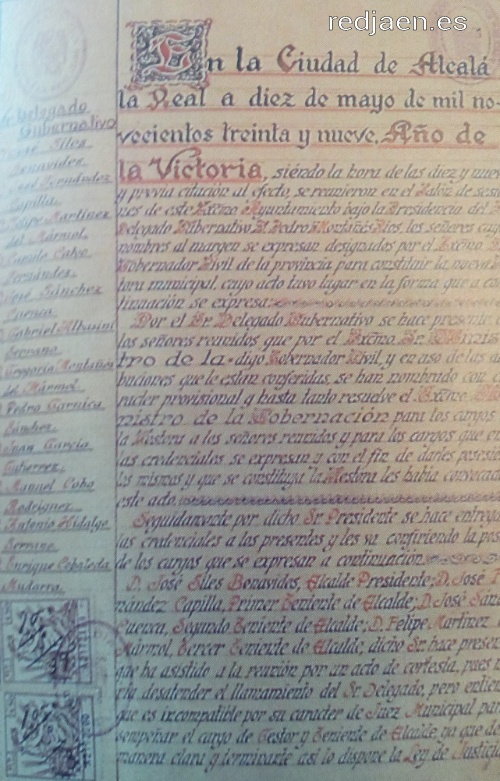 redjaen.es
En la Ciudad de Alcalá
la Real a diez de mayo de mil no-
vecientos treinta y nueve. Año de
la Victoria, siéndo la hora de las diez y nueve
y previa citación al efecto, se reunieron en el Salón de sesio
nes de este Excmo Ayuntamiento bajo la Presidencia del
Delegado Gubernativo D. Pedro Montañés los señores cuyos
nombres al margen se expresan designados por el Excmo
Gobernador Civil de la provincia para constituir la nueva
tora municipal, cuyo acto tuvo lugar en la forma que a con
tinuación se expresa.
Por el Sr. Delegado Gubernativo se hace presente
los señores reunidos que por el Excmo Sr. Minis
tro de la = digo Gobernador Civil, y en uso de las atri
buciones que le están conferidas, se han nombrado con ca
racter provisional y hasta tanto resuelve el Excmo
nistro de la Gobernación para los cargos
la Gestora a los señores reunidos y para los cargos que en
las credenciales se expresan y con el fin de darles posesi
los mismos y que se constituya la Gestora les había convoca
este acto.
Seguidamente por dicho Sr. Presidente se hace entrega
las credenciales a los presentes y les va confiriendo la pose
de los cargos que se expresan a continuación
D. José Siles Benavides, Alcalde Presidente; D. José F
nández Capilla, Primer Teniente de Alcalde; D. José Sán
Cuenca, Segundo Teniente de Alcalde; D. Felipe Martínez
Mármol, Tercer Teniente de Alcalde, dicho Sr. hace presen
que ha asistido a la reunión por un acto de cortesía, pues
ría desatender el llamamiento del Sr. Delegado, pero entien
que es incompatible por su caracter de Juez Municipal para
sempeñar el cargo de Gestor y Teniente de Alcalde ya que de
manera clara y terminante así lo dispone la Ley de Justicia
Delegado
Gubernativo
José Siles
Benavides
José Fernández
Capilla
Felipe Martínez
del Mármol
Manuel Cobo
Fernández
José Sánchez
Cuenca
Gabriel Albasini
Serrano
Gregorio Montañés
del Mármol
Pedro Garnica
Sánchez
Juan García
Gutierrez
Manuel Cobo
Rodríguez
Antonio Hidalgo
Serrano
Enrique Ceballeda
Mudarra